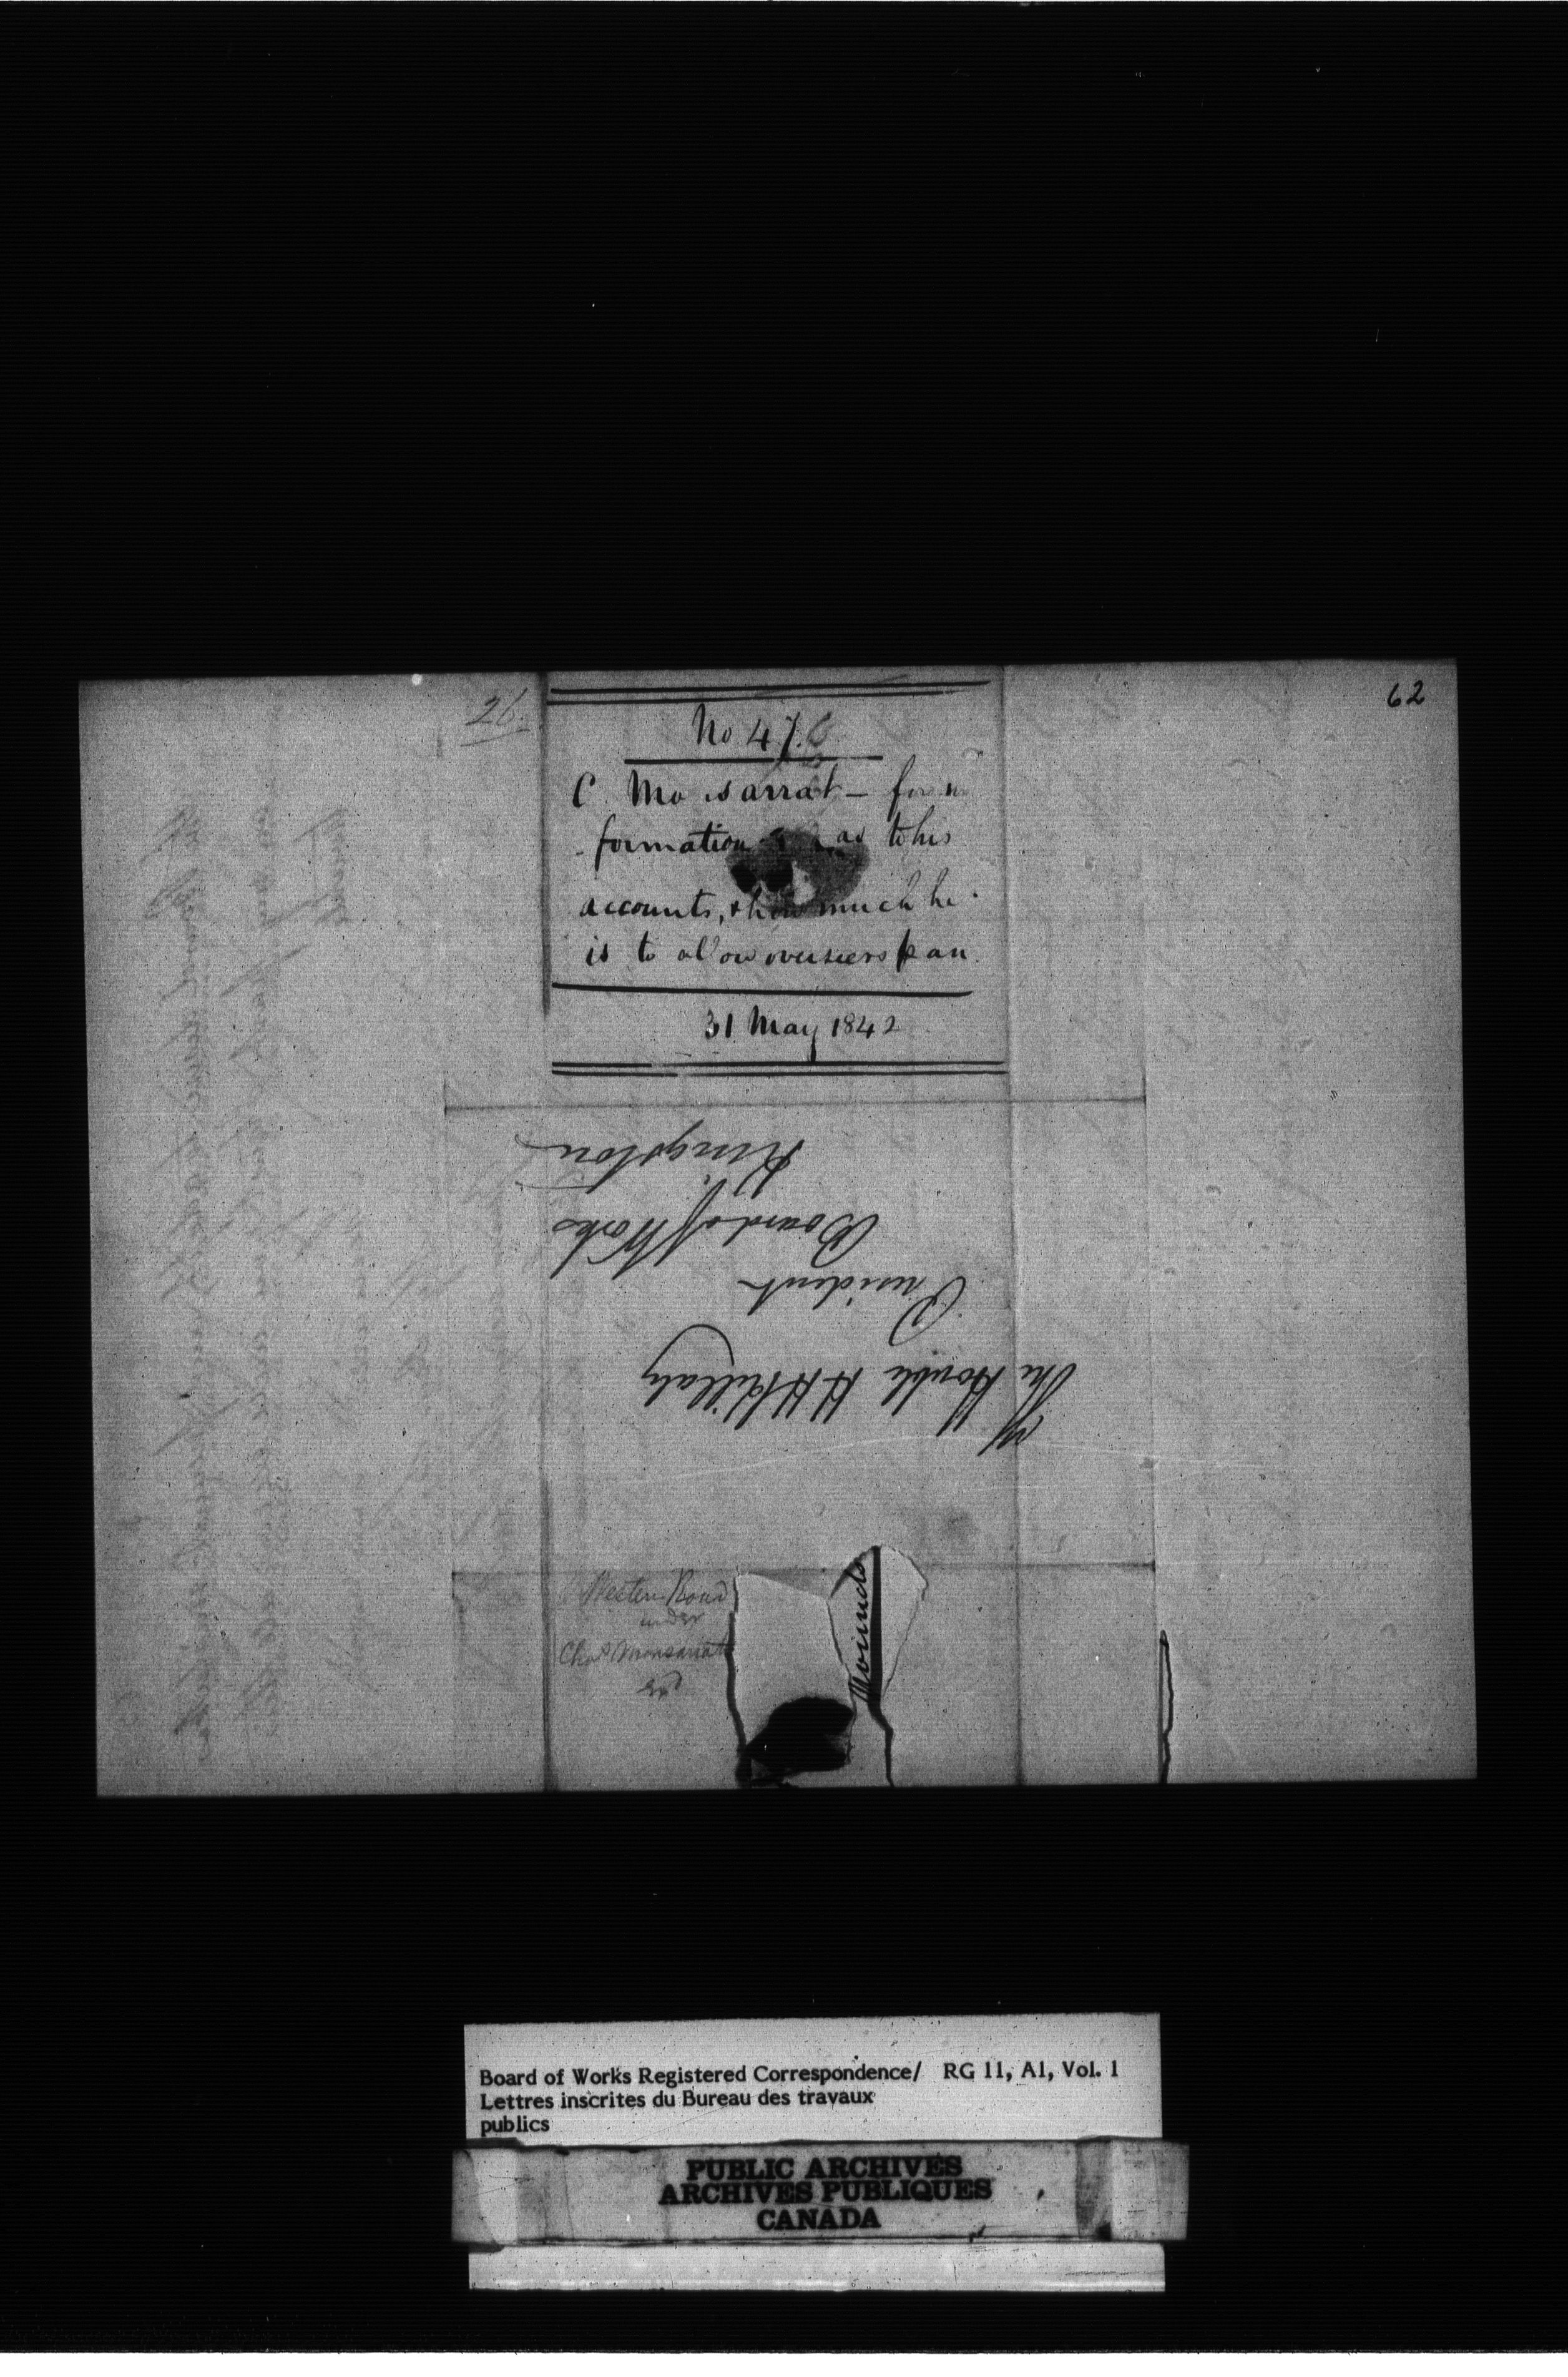 26.
62
No 476
C. Monsarrat – for in
-formation as to his
accounts, & how much he
is to allow overseers p an.
31 May 1842
The Honble H H Killaly
President
Board of Works
Kingston
Western Road
under
Chas Monsarrat
Esqr
Board of Works Registered Correspondence/ RG 11, A1, Vol. 1
Lettres inscrites du Bureau des travaux
publics
PUBLIC ARCHIVES
ARCHIVES PUBLIQUES
CANADA